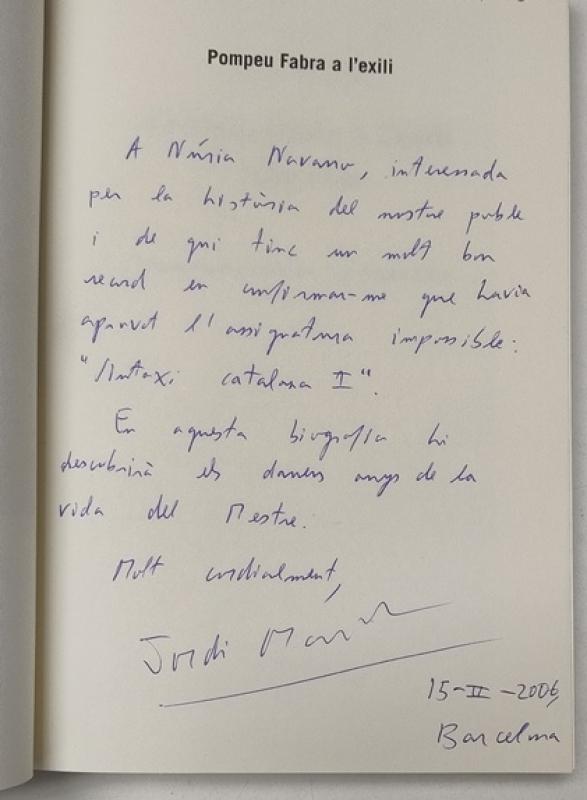 Pompeu Fabra a l'exili
A Núria Navarro, interessada
per la història del nostre poble
i de qui tinc un molt bon
record en confirmar-me que havia
aprovat l'assignatura impossible:
"Sintaxi catalana I".
En aquesta biografia hi
descobrirà els darrers anys de la
vida del Mestre.
Molt cordialment,
Jordi
15-II-2006,
Barcelona